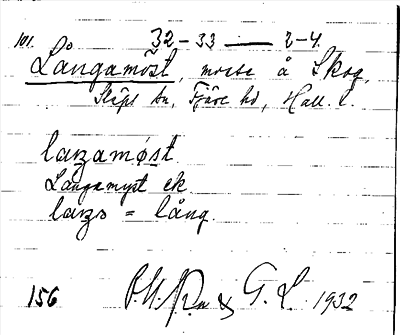 101. 32-33 — 2-4.
Långamöst, mosse å Skog,
Släps sn, Fjäre hd, Hall. l.
laŋamøst
Långamyst ek
laŋs = lång.
156 G. L. 1932